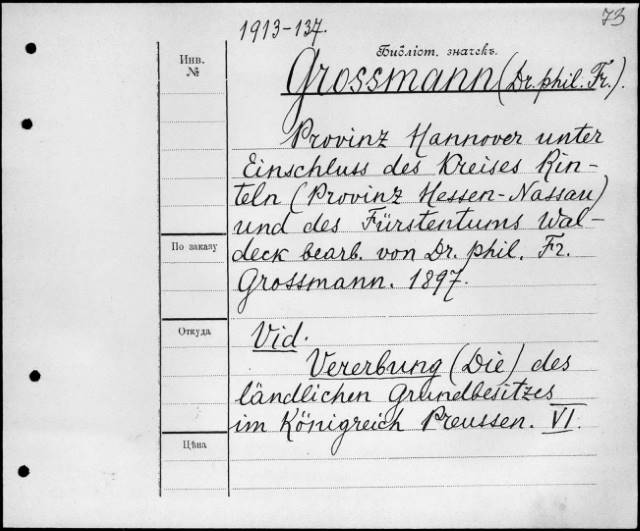 73
1913-137.
Библіот. значекъ.
Инв.
№
Grossmann (Dr. phil. Fr.).
Provinz Hannover unter
Einschluss des Kreises Rin-
teln (Provinz Hessen-Nassau)
und des Fürstentums Wal-
По заказу
deck bearb. von Dr. phil. Fr.
Grossmann. 1897.
Откуда
Vid.
Vererbung (Die) des
ländlichen Grundbesitzes
im Königreich Preussen. VI.
Цѣна